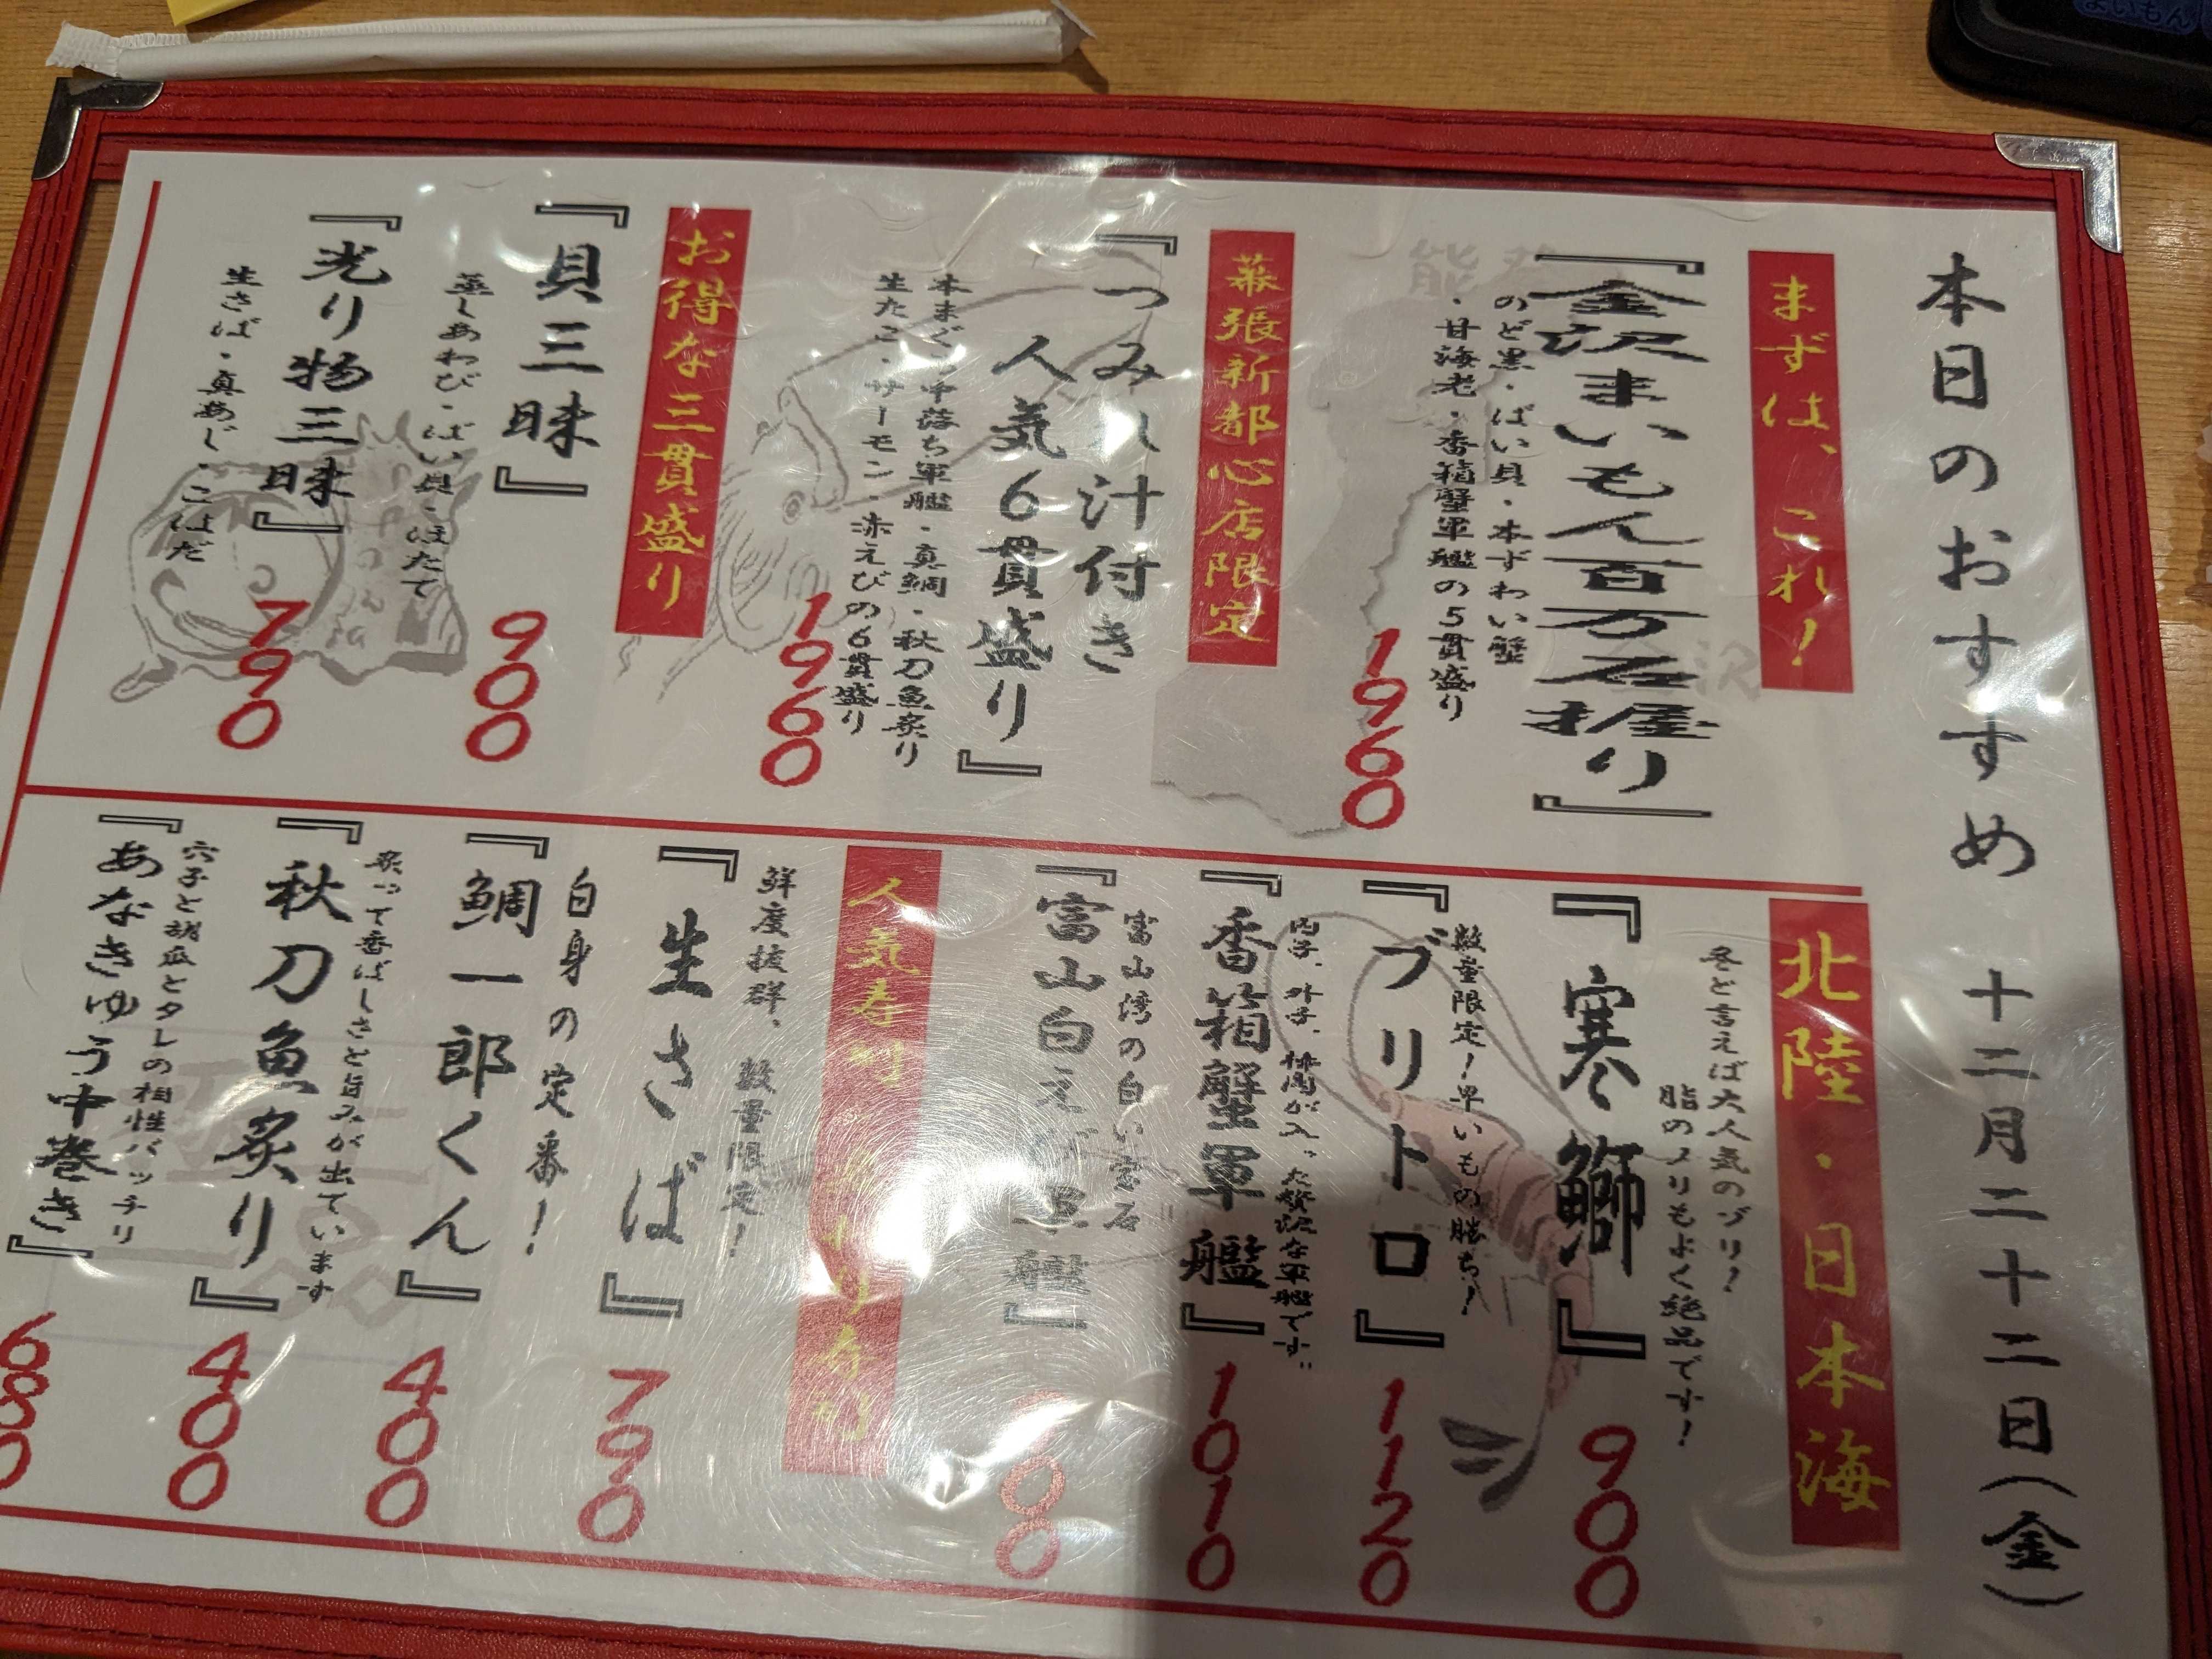 本日のおすすめ 十二月二十二日(金)
まずは、これ!
『金沢まいもん百万石握り』
のど黒・ばい貝・本ずわい蟹
・甘海老・香箱蟹軍艦の5貫盛り
1960
幕張新都心店限定
『つみれ汁付き
人気6貫盛り』
本まぐろ中落ち軍艦・真鯛・秋刀魚炙り
生たこ・サーモン・赤えびの6貫盛り
1960
お得な三貫盛り
『貝三昧』
蒸しあわび・ばい貝・ほたて
900
『光り物三昧』
生さば・真あじ・こはだ
790
北陸・日本海
冬と言えば大人気のブリ!
脂のノリもよく絶品です!
『寒鰤』
900
数量限定!早いもの勝ち!
『ブリトロ』
1120
内子、外子、蟹肉が入った贅沢な軍艦です!!
『香箱蟹軍艦』
1010
富山湾の白い宝石
『富山白えび軍艦』
人気寿司
鮮度抜群、数量限定!
『生さば』
790
白身の定番!
『鯛一郎くん』
400
炙って香ばしさと旨みが出ています
『秋刀魚炙り』
400
穴子と胡瓜とタレの相性バッチリ
『あなきゅう中巻き』
680